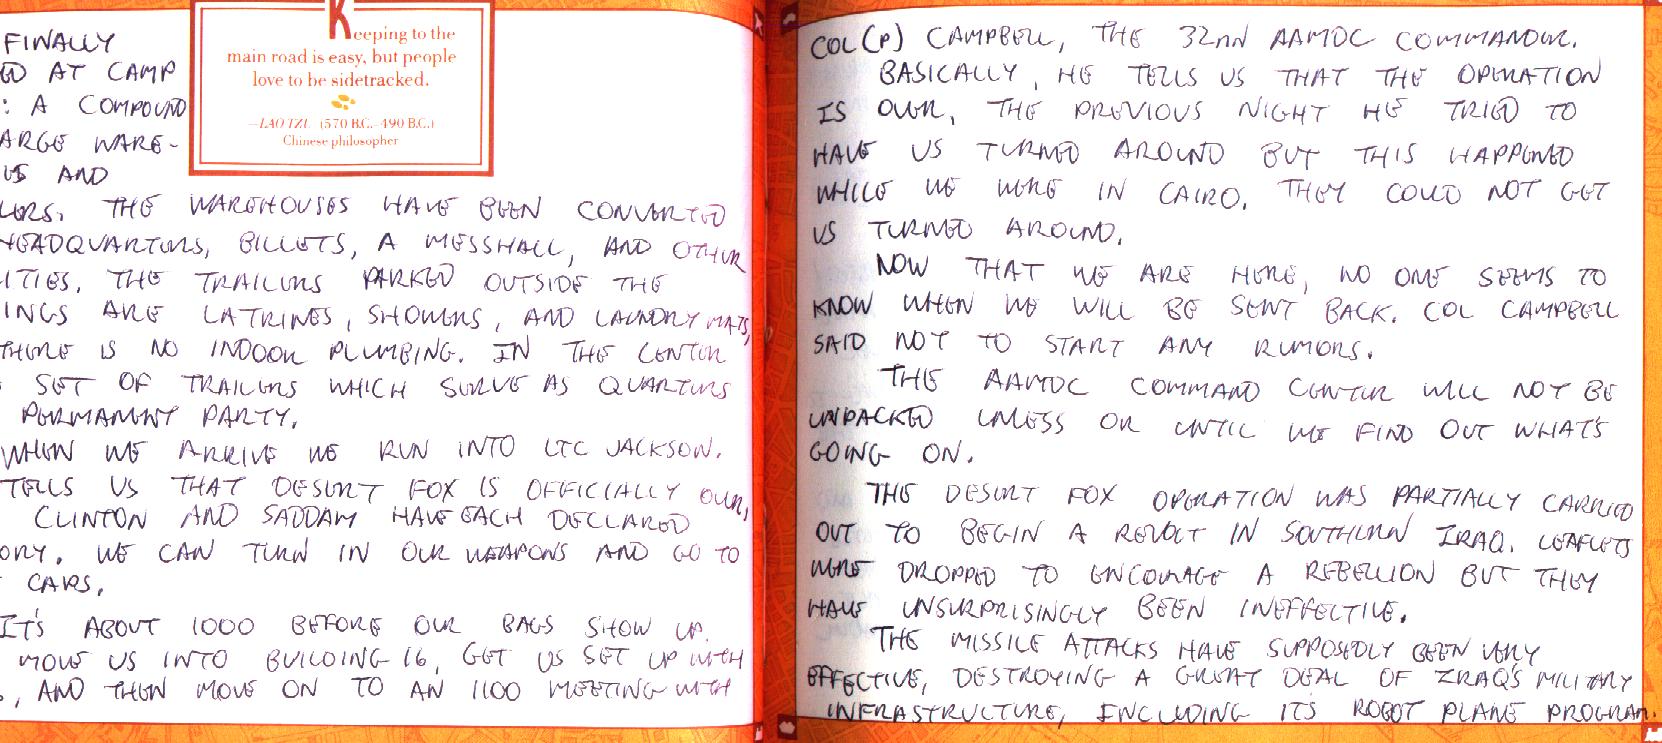 Keeping to the
main road is easy, but people
love to be sidetracked.
—LAO TZU (570 B.C.–490 B.C.)
Chinese philosopher
FINALLY
ED AT CAMP
: A COMPOUND
ARGE WARE-
US AND
LERS. THE WAREHOUSES HAVE BEEN CONVERTED
HEADQUARTERS, BILLETS, A MESSHALL, AND OTHER
ITIES. THE TRAILERS PARKED OUTSIDE THE
INGS ARE LATRINES, SHOWERS, AND LAUNDRY MATS,
THERE IS NO INDOOR PLUMBING. IN THE CENTER
SET OF TRAILERS WHICH SERVE AS QUARTERS
PERMANENT PARTY.
WHEN WE ARRIVE WE RUN INTO LTC JACKSON.
TELLS US THAT DESERT FOX IS OFFICIALLY OVER,
CLINTON AND SADDAM HAVE EACH DECLARED
ORY. WE CAN TURN IN OUR WEAPONS AND GO TO
CARS.
IT'S ABOUT 1000 BEFORE OUR BAGS SHOW UP.
MOVE US INTO BUILDING 16, GET US SET UP WITH
, AND THEN MOVE ON TO AN 1100 MEETING WITH
COL(P) CAMPBELL, THE 32ND AAMDC COMMANDER.
BASICALLY, HE TELLS US THAT THE OPERATION
IS OVER, THE PREVIOUS NIGHT HE TRIED TO
HAVE US TURNED AROUND BUT THIS HAPPENED
WHILE WE WERE IN CAIRO. THEY COULD NOT GET
US TURNED AROUND.
NOW THAT WE ARE HERE, NO ONE SEEMS TO
KNOW WHEN WE WILL BE SENT BACK. COL CAMPBELL
SAID NOT TO START ANY RUMORS.
THE AAMDC COMMAND CENTER WILL NOT BE
UNPACKED UNLESS OR UNTIL WE FIND OUT WHAT'S
GOING ON.
THE DESERT FOX OPERATION WAS PARTIALLY CARRIED
OUT TO BEGIN A REVOLT IN SOUTHERN IRAQ. LEAFLETS
WERE DROPPED TO ENCOURAGE A REBELLION BUT THEY
HAVE UNSURPRISINGLY BEEN INEFFECTIVE.
THE MISSILE ATTACKS HAVE SUPPOSEDLY BEEN VERY
EFFECTIVE, DESTROYING A GREAT DEAL OF IRAQ'S MILITARY
INFRASTRUCTURE, INCLUDING ITS ROBOT PLANE PROGRAM.